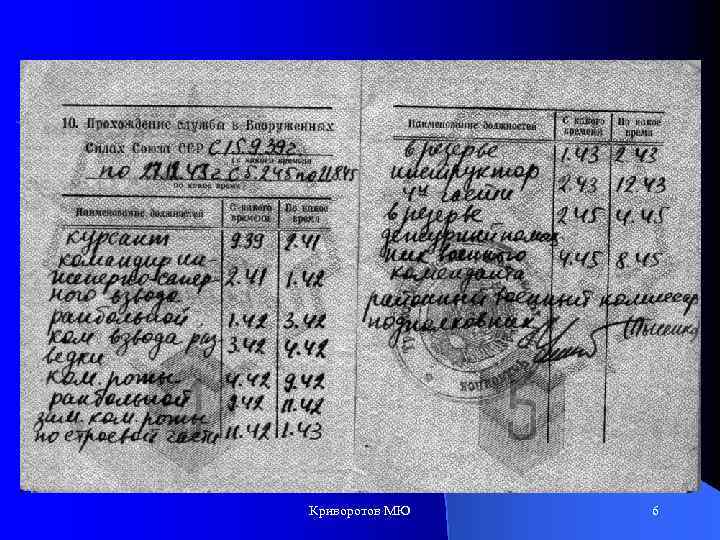 10. Прохождение службы в Вооруженных
Силах Союза ССР с 15.9.39 г.
(с какого времени
по г с 5.2.45 по 21.8.45
по какое время)
Наименование должностей С какого времени По какое время
курсант 9.39 2.41
командир ин-
женерно-сапер- 2.41 1.42
ного взвода
раибольной 1.42 3.42
ком взвода раз 3.42 4.42
ведки
ком. роты 4.42 9.42
раибольной 9.42 11.42
зам. ком. роты
по строевой части 11.42 1.43
Наименование должностей С какого времени По какое время
в резерве 1.43 2.43
инструктор 2.43 12.43
ч части
в резерве 2.45 4.45
дежурный помощ
ник военного 4.45 8.45
коменданта
районный военный комиссар
подполковник
Криворотов МЮ
6